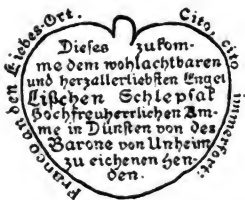 Franco an den Liebes-Ort.
Cito, cito immerfort:
Dieses zukom-
me dem wohlachtbaren
und herzallerliebsten Engel
Lißchen Schlepsak
Hochfreuherrlichen Am-
me in Dünsten von des
Barone von Unheim
zu eichenen Hen-
den.